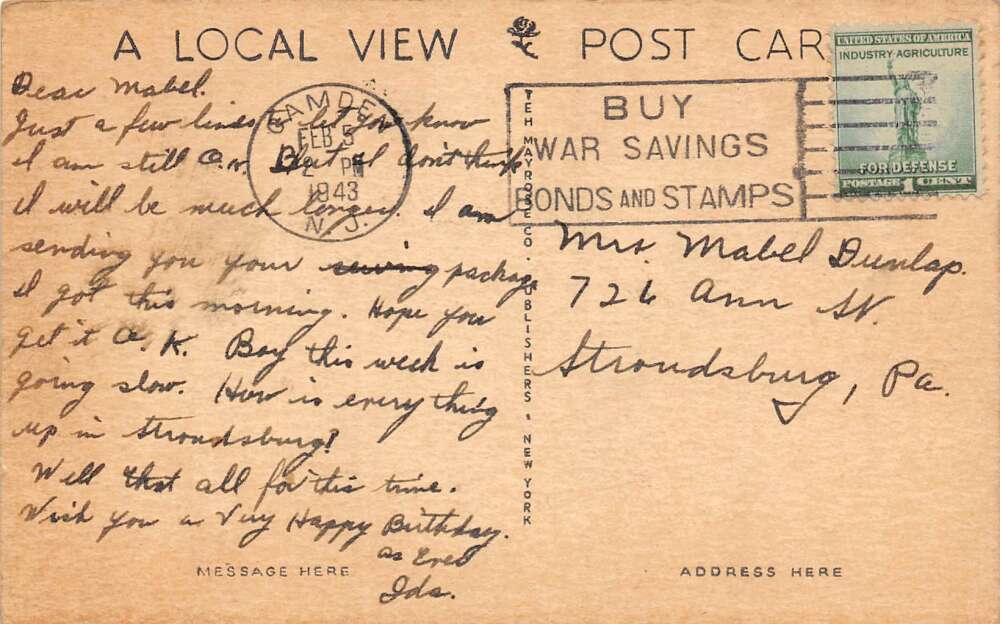 A LOCAL VIEW POST CAR
UNITED STATES OF AMERICA
INDUSTRY·AGRICULTURE
FOR DEFENSE
POSTAGE 1 CENT
CAMDEN
FEB 5
2 PM
1943
N. J.
BUY
WAR SAVINGS
BONDS AND STAMPS
Dear Mabel.
Just a few lines to let you know
I am still O.K. But I don't think
I will be much longer. I am
sending you your package
I got this morning. Hope you
get it O.K. Boy this week is
going slow. How is every thing
up in Stroudsburg?
Well that all for this time.
Wish you a Very Happy Birthday.
as Ever
Ida.
MESSAGE HERE
THE MAYROSE CO. PUBLISHERS · NEW YORK
Mrs. Mabel Dunlap.
726 Ann St.
Stroudsburg, Pa.
ADDRESS HERE